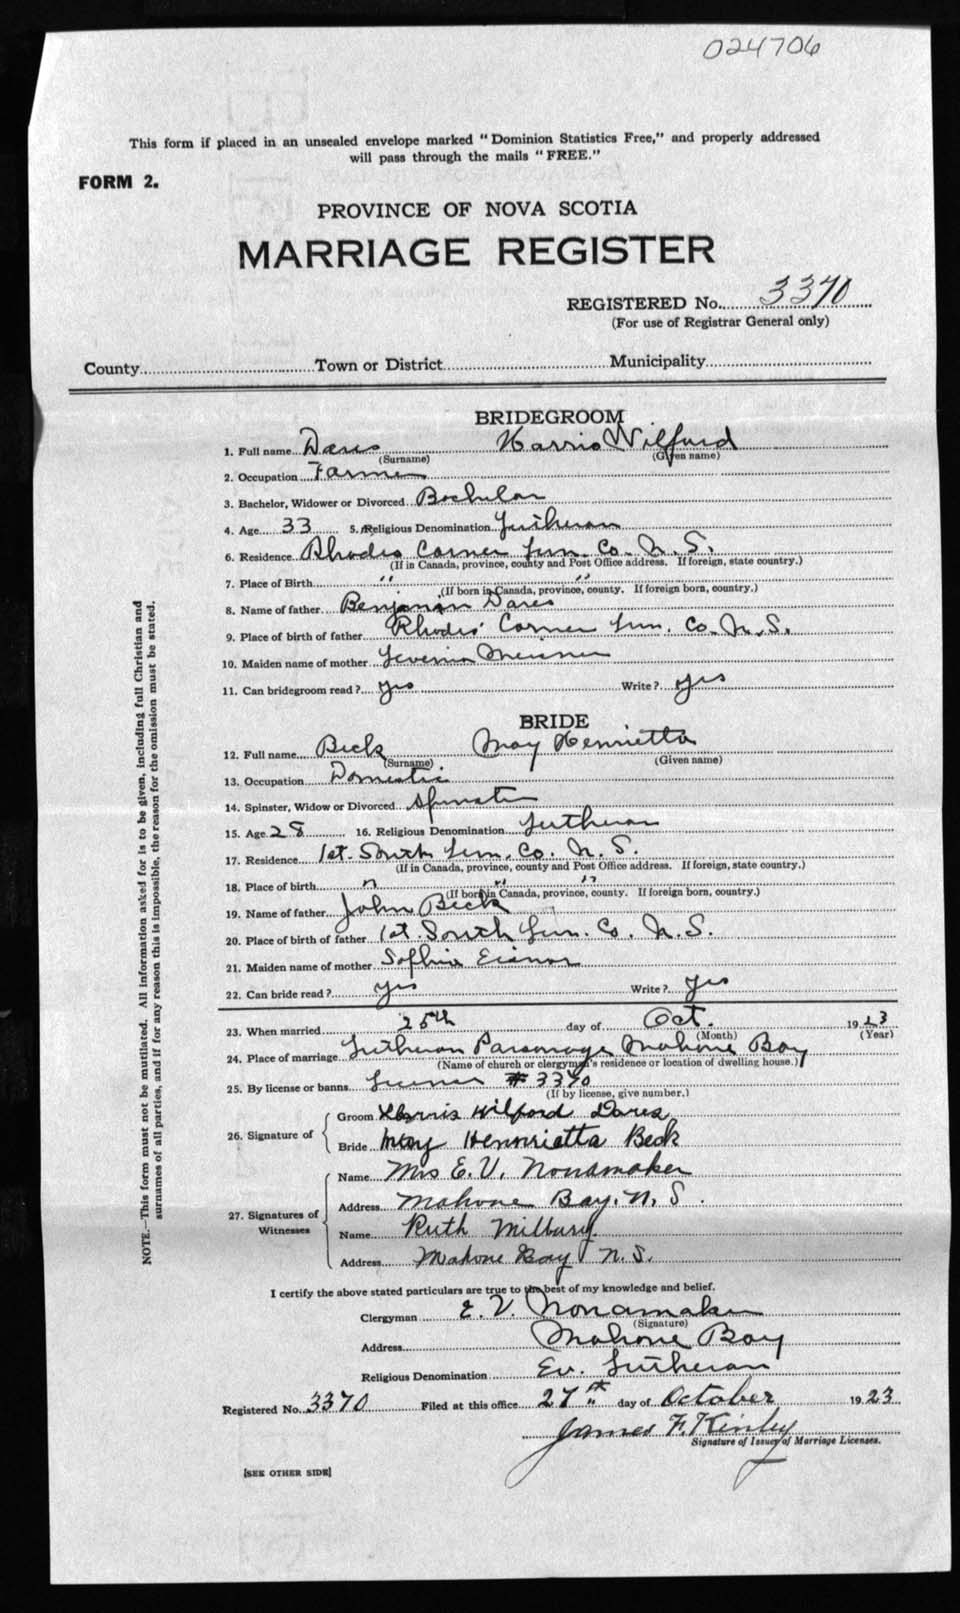 024706
This form if placed in an unsealed envelope marked "Dominion Statistics Free," and properly addressed
will pass through the mails "FREE."
FORM 2.
PROVINCE OF NOVA SCOTIA
MARRIAGE REGISTER
REGISTERED No. 3370
(For use of Registrar General only)
County Town or District Municipality
BRIDEGROOM
1. Full name Dares Harris Wilford
(Surname) (Given name)
2. Occupation Farmer
3. Bachelor, Widower or Divorced Bachelor
4. Age 33 5. Religious Denomination Lutheran
6. Residence Rhodes Corner Lun. Co. N.S.
(If in Canada, province, county and Post Office address. If foreign, state country.)
7. Place of Birth " "
(If born in Canada, province, county. If foreign born, country.)
8. Name of father Benjaman Dares
9. Place of birth of father Rhodes Corner Lun. Co. N.S.
10. Maiden name of mother Levenia Meisner
11. Can bridegroom read? yes Write? yes
BRIDE
12. Full name Beck May Henrietta
(Surname) (Given name)
13. Occupation Domestic
14. Spinster, Widow or Divorced Spinster
15. Age 28 16. Religious Denomination Lutheran
17. Residence 1st. South Lun. Co. N.S.
(If in Canada, province, county and Post Office address. If foreign, state country.)
18. Place of birth " " "
(If born in Canada, province, county. If foreign born, country.)
19. Name of father John Beck
20. Place of birth of father 1st. South Lun. Co. N.S.
21. Maiden name of mother Sophia
22. Can bride read? yes Write? yes
23. When married 25th day of Oct. 1923
(Month) (Year)
24. Place of marriage Lutheran Parsonage Mahone Bay
(Name of church or clergyman's residence or location of dwelling house.)
25. By license or banns License # 3370
(If by license, give number.)
26. Signature of
Groom Harris Wilford Dares
Bride May Hennrietta Beck
27. Signatures of Witnesses
Name Mrs E. V. Nonamaker
Address Mahone Bay, N. S.
Name Ruth Milbury
Address Mahone Bay N. S.
I certify the above stated particulars are true to the best of my knowledge and belief.
Clergyman E. V. Nonamaker
(Signature)
Address Mahone Bay
Religious Denomination Ev. Lutheran
Registered No. 3370 Filed at this office 27th day of October 1923
James F. Kinley
Signature of Issuer of Marriage Licenses.
[SEE OTHER SIDE]
NOTE.—This form must not be mutilated. All information asked for is to be given, including full Christian and
surnames of all parties, and if for any reason this is impossible, the reason for the omission must be stated.